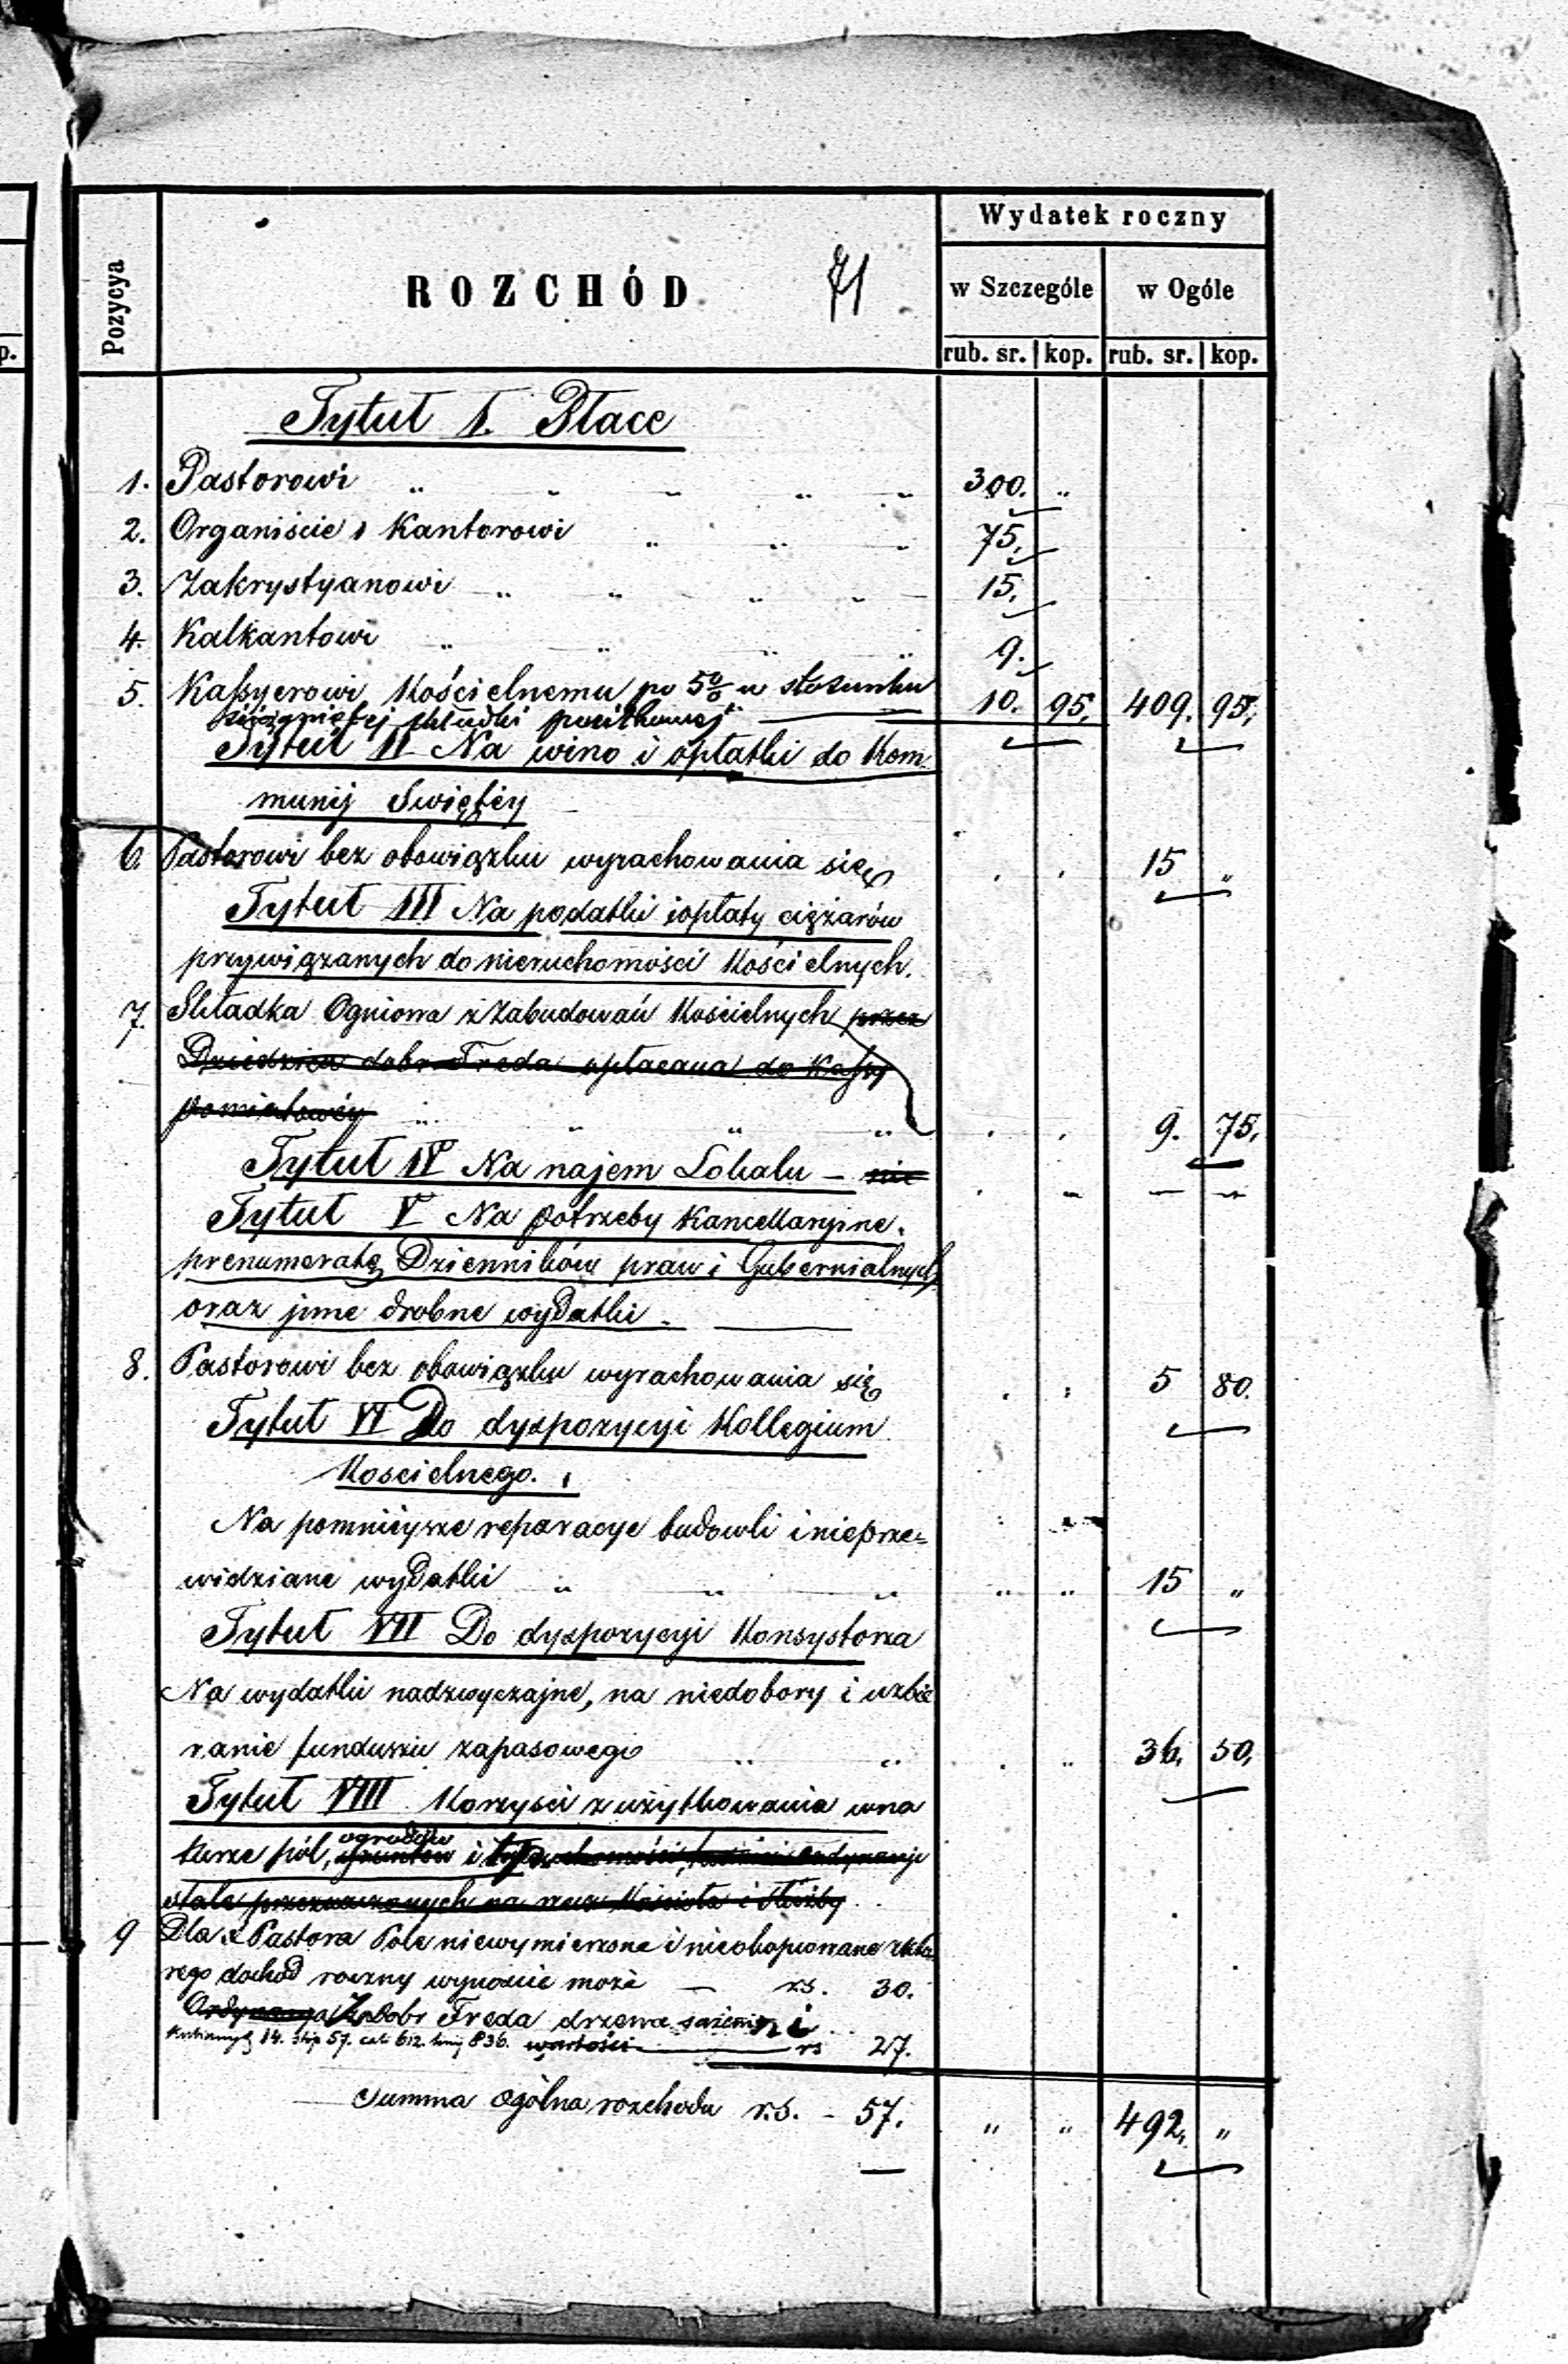 p.
Pozycya
ROZCHÓD
71
Wydatek roczny
w Szczególe w Ogóle
rub. sr. kop. rub. sr. kop.
Tytuł I. Płace
1. Pastorowi „ „ „ „ „ 300. „
2. Organiście i Kantorowi „ „ „ 75.
3. Zakrystyanowi „ „ „ „ „ 15.
4. Kalkantowi „ „ „ „ 9.
5. Kassyerowi Kościelnemu po 5% w stosunku 10. 95. 409. 95.
ściągniętej składki posiłkowej
Tytuł II Na wino i opłatki do Kom
munij Swiętéy
6. Pastorowi bez obowiązku wyrachowania się 15 „
Tytuł III Na podatki i opłaty ciężarów
przywiązanych do nieruchomości Kościelnych.
7. Składka Ogniowa z Zabudowań Kościelnych przez
Dziedzica dobr Freda opłacana do Kassy
powiatowéy „ „ „ „ 9. 75.
Tytuł IV Na najem Lokalu – nic
Tytuł V Na potrzeby Kancellaryine.
prenumeratę Dzienników praw i Gubernialnych
oraz jnne drobne wydatki.
8. Pastorowi bez obowiązku wyrachowania się 5 80.
Tytuł VI Do dyspozycyi Kollegium
Koscielnego.
Na pomnieysze reparacye budowli i nieprze=
widziane wydatki „ „ „ „ „ 15 „
Tytuł VII Do dyspozycyi Konsystorza
Na wydatki nadzwyczajne, na niedobory i uzbie
ranie funduszu zapasowego „ „ „ 36. 50.
Tytuł VIII Korzyści z użytkowania w na
turze pól, ogrodów gruntów i
stale przeznaczonych na rzecz Kościoła i służby
9 Dla Pastora Pole niewymierzone i nieokopcowane z któ
rego dochód roczny wynosić może — rs. 30.
Ordynarya Z Dobr Freda drzewa sążeni
14. stóp 57. cali 612. linij 836. wartości rs 27.
Summa ogólna rozchodu r.s. – 57. „ „ 492. „